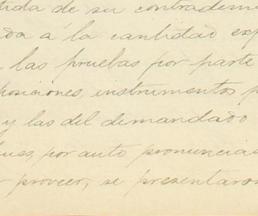 tida de su contrademan
da a la cantidad exp
las pruebas por parte
posiciones, instrumentos p
y las del demandado
puso, por auto pronuncia
proveer, se presentaron